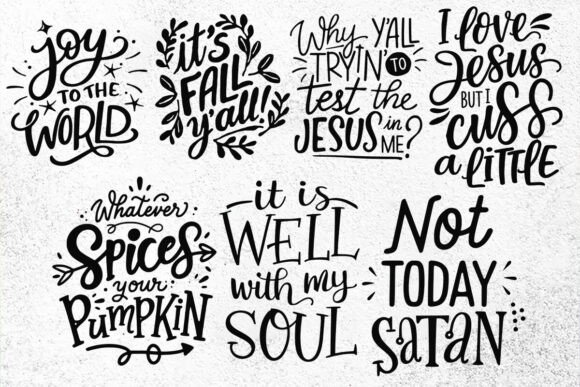 Joy
TO THE
WORLD
it's
FALL
y'all!
Why Y'ALL
TRYIN' TO
test the
JESUS in
ME?
I Love
Jesus
BUT I
CUSS
a LITTLE
Whatever
Spices
your
PumPKIN
it is
WELL
with my
SOUL
Not
TODAY
SATAN